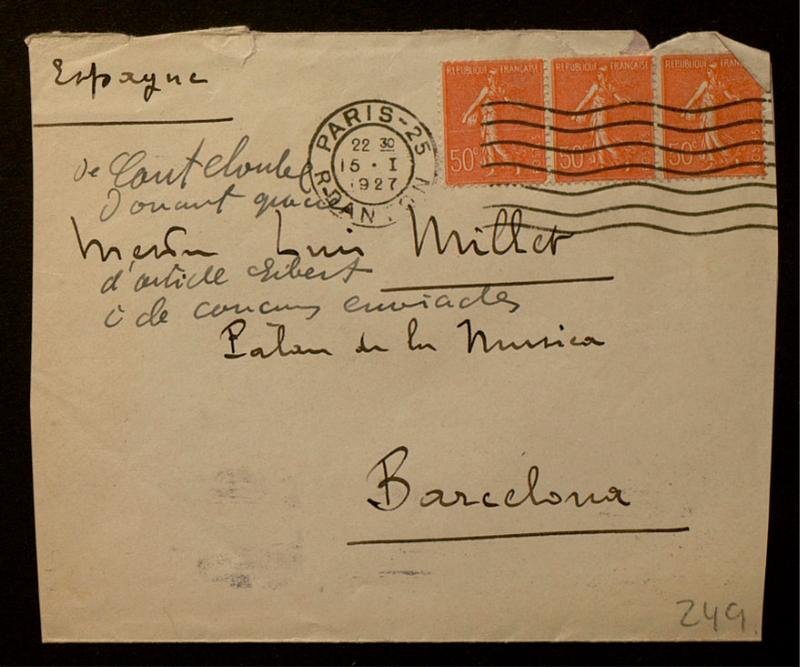 Espagne
REPUBLIQUE FRANÇAISE
50c
REPUBLIQUE FRANÇAISE
50c
REPUBLIQUE FRAN
50c
PARIS-25
22 30
15 · I
1927
R. DAN
de Canteloube
Donant gracies
Mestre Luis Millet
d'article Gibert
i de cançons enviades
Palau de la Musica
Barcelona
249.